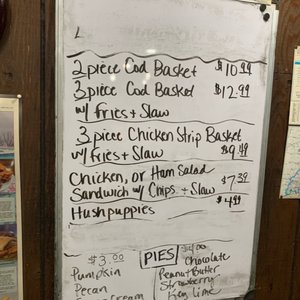 2 piece Cod Basket $10.99
3 piece Cod Basket $12.99
w/ fries + Slaw
3 piece Chicken Strip Basket
w/ fries + Slaw $9.49
Chicken, or Ham Salad
Sandwich w/ Chips + Slaw $7.39
Hushpuppies $4.99
$3.00 PIES $4.00
Pumpkin Chocolate
Pecan Peanut Butter
Cream Strawberry
Key Lime